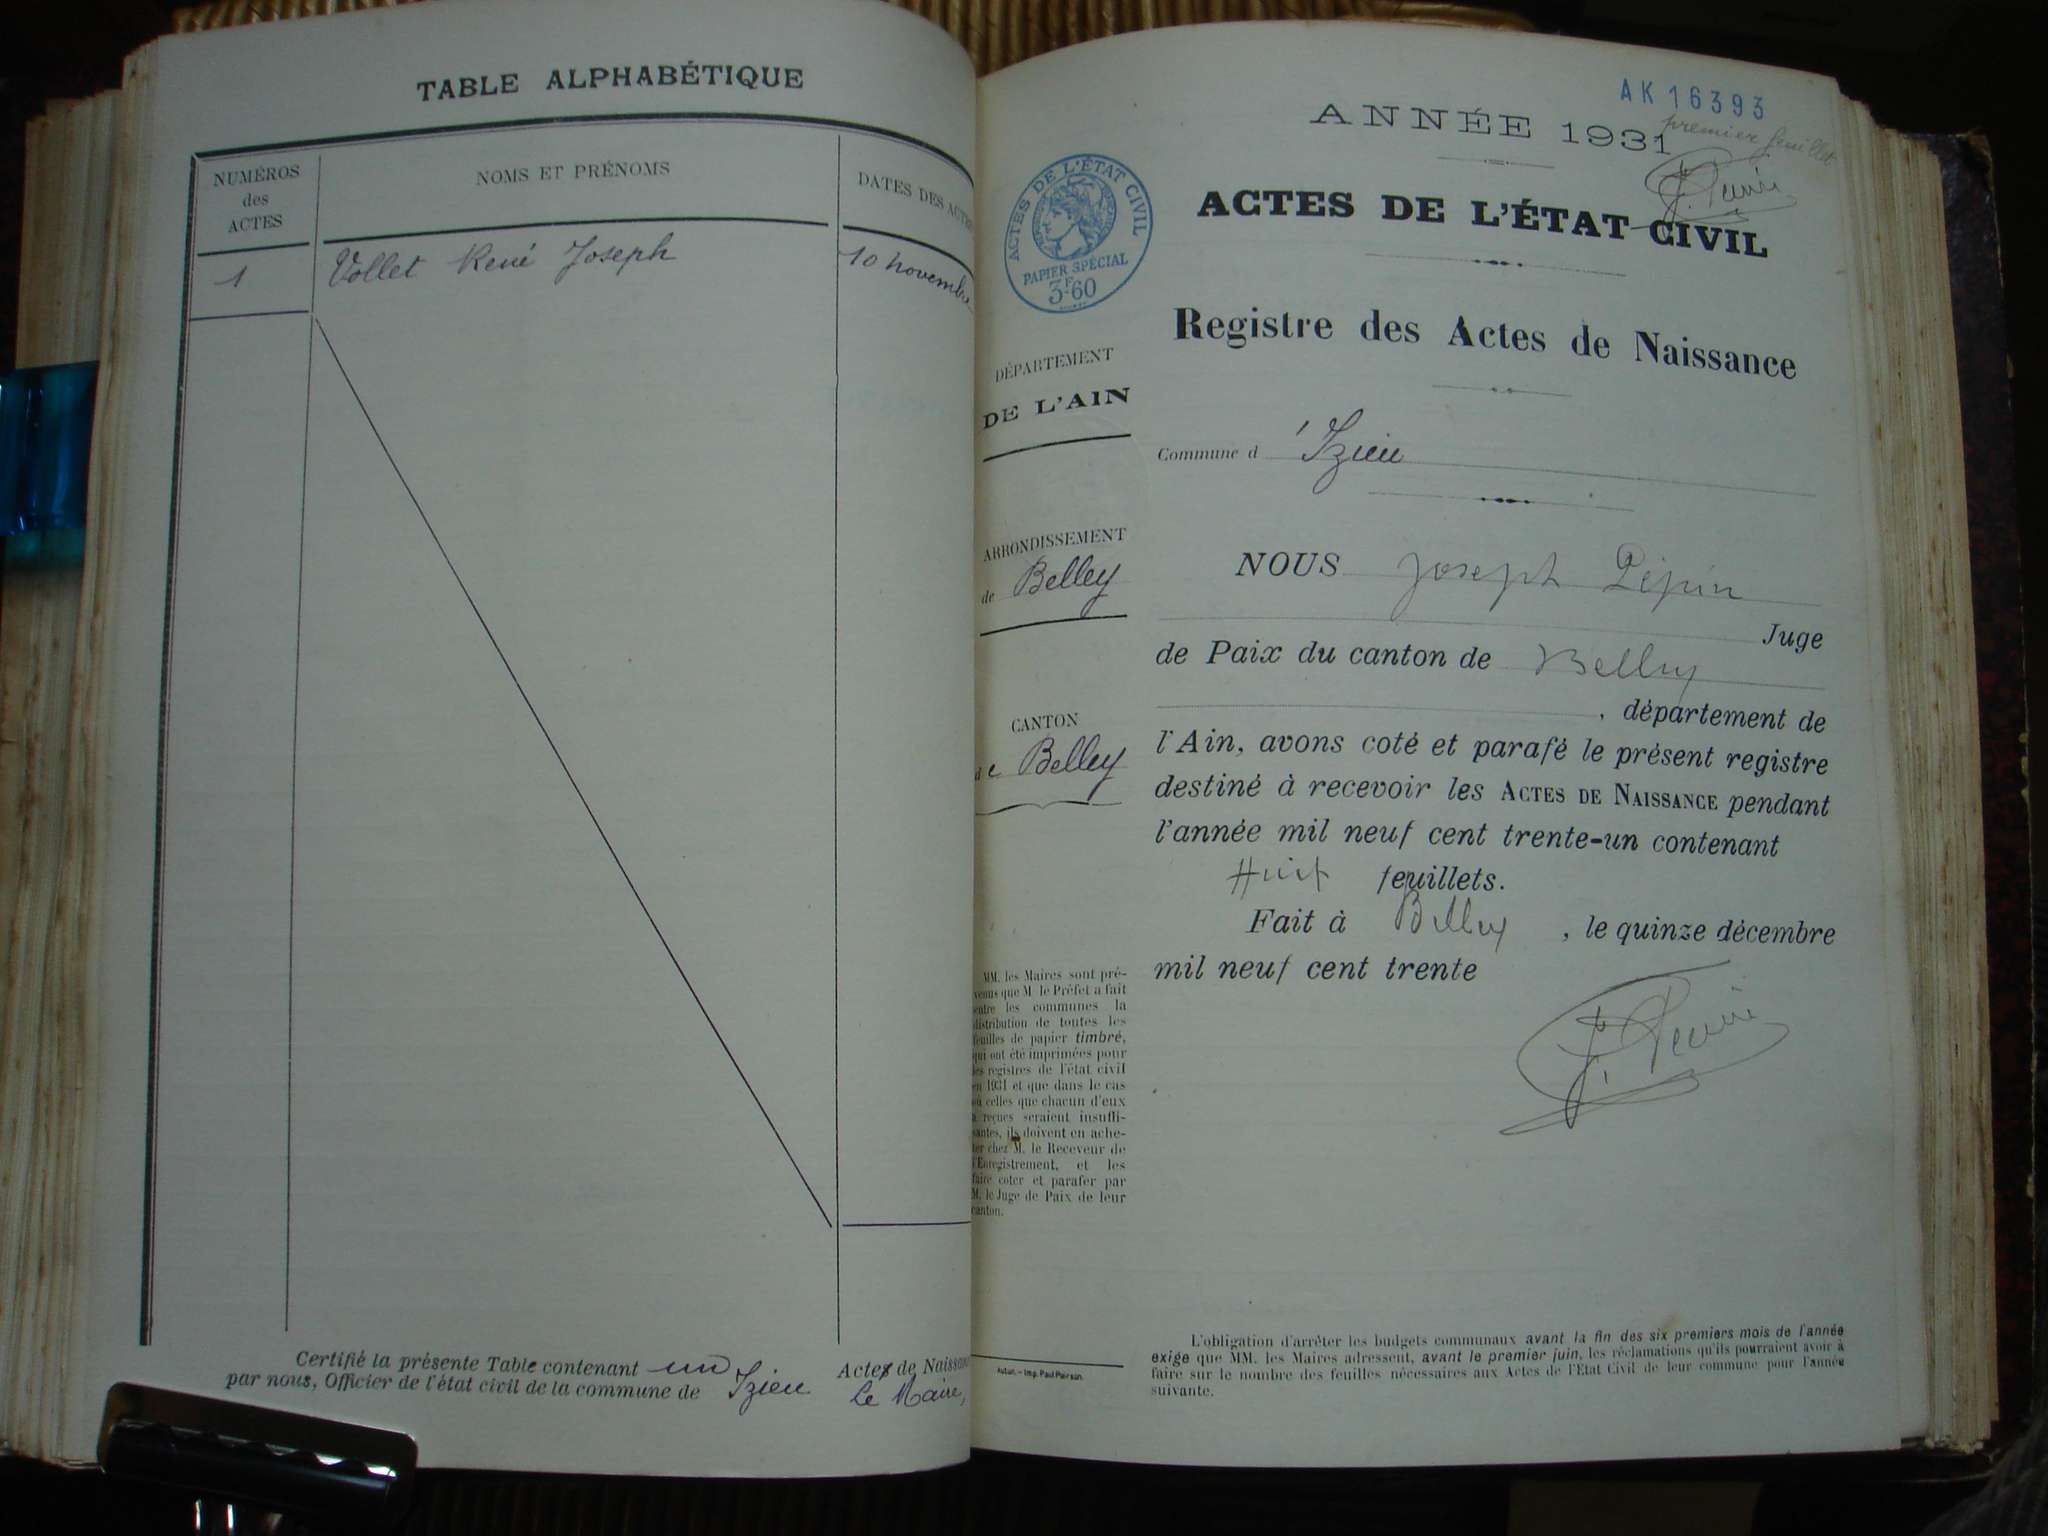 TABLE ALPHABÉTIQUE
NUMÉROS
des
ACTES
NOMS ET PRÉNOMS
DATES DES ACTES
1
Vollet René Joseph
10 novembre
Certifié la présente Table contenant un Actes de Naissance
par nous, Officier de l'état civil de la commune de Izieu Le Maire,
AK 16393
premier feuillet
ANNÉE 1931
ACTES DE L'ÉTAT CIVIL
PAPIER SPÉCIAL
3F60
ACTES DE L'ÉTAT CIVIL
Registre des Actes de Naissance
DÉPARTEMENT
DE L'AIN
Commune d'Izieu
ARRONDISSEMENT
de Belley
CANTON
de Belley
NOUS Joseph Pépin
Juge
de Paix du canton de Belley
, département de
l'Ain, avons coté et parafé le présent registre
destiné à recevoir les ACTES DE NAISSANCE pendant
l'année mil neuf cent trente-un contenant
Huit feuillets.
Fait à Belley , le quinze décembre
mil neuf cent trente
MM. les Maires sont pré-
venus que M le Préfet a fait
entre les communes la
distribution de toutes les
feuilles de papier timbré,
qui ont été imprimées pour
les registres de l'état civil
en 1931 et que dans le cas
où celles que chacun d'eux
a reçues seraient insuffi-
santes, ils doivent en ache-
ter chez M. le Receveur de
l'Enregistrement, et les
faire coter et parafer par
M. le Juge de Paix de leur
canton.
Autun. – Imp. Paul Poirson.
L'obligation d'arrêter les budgets communaux avant la fin des six premiers mois de l'année
exige que MM. les Maires adressent, avant le premier juin, les réclamations qu'ils pourraient avoir à
faire sur le nombre des feuilles nécessaires aux Actes de l'Etat Civil de leur commune pour l'année
suivante.